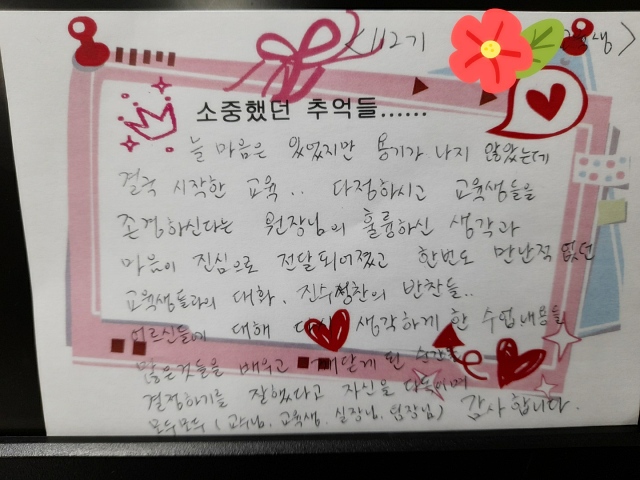 <112기 생>
소중했던 추억들......
늘 마음은 있었지만 용기가 나지 않았는데
결국 시작한 교육.. 다정하시고 교육생들을
존경하신다는 원장님의 훌륭하신 생각과
마음이 진심으로 전달되어졌고 한번도 만난적 없던
교육생들과의 대화, 진수성찬의 반찬들..
어르신들에 대해 다시 생각하게 한 수업내용들
많은것들을 배우고 깨닫게 된 순간들
결정하기를 잘했다고 자신을 다독이며
모두모두 (교수님, 교육생, 실장님, 팀장님) 감사합니다.